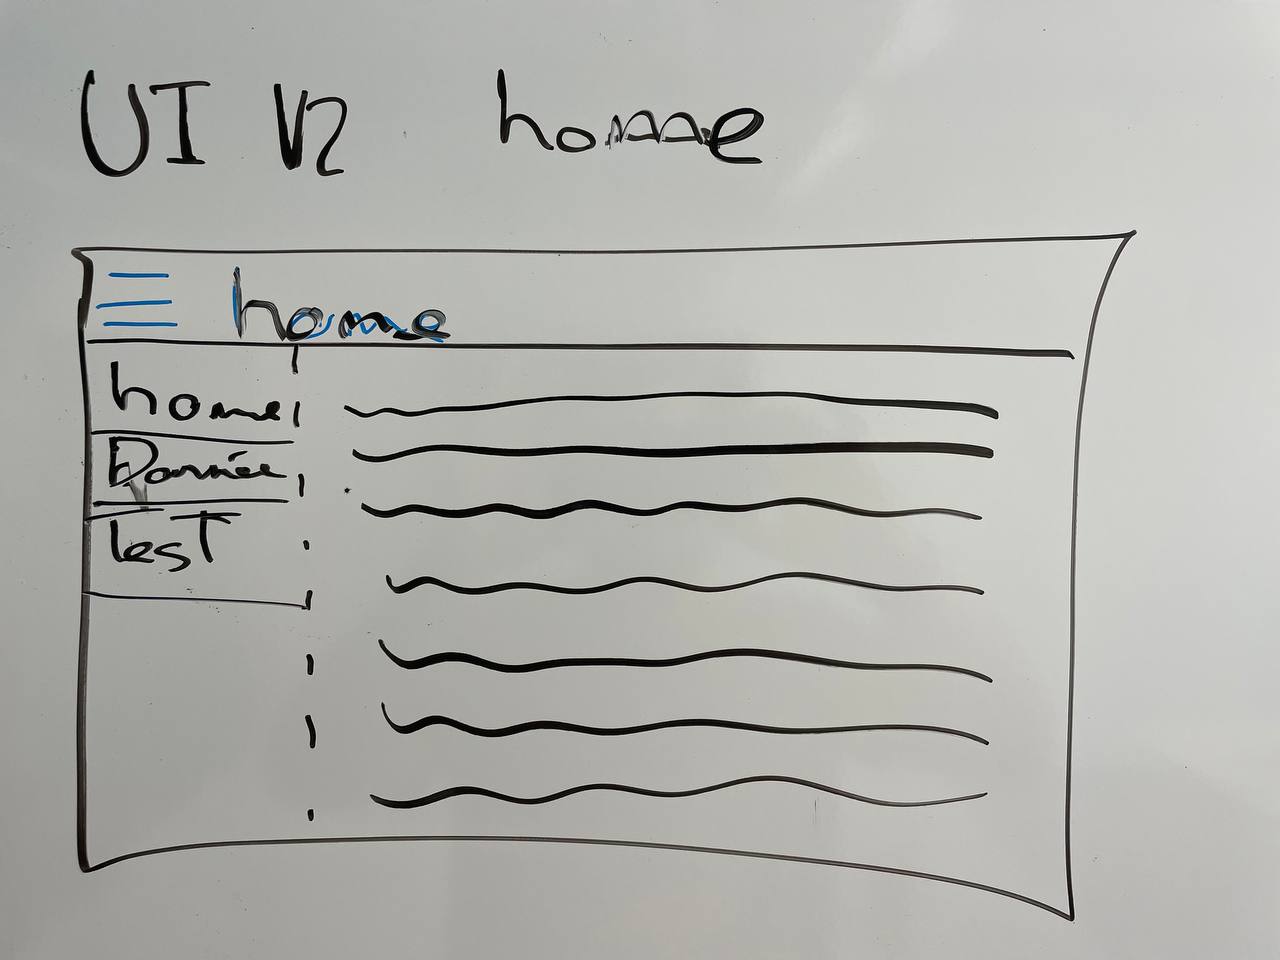 UI V2 home
home
home
Donnée
Test